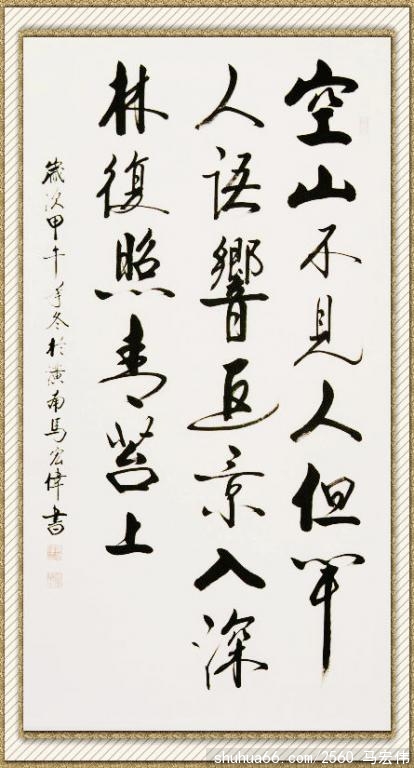 空山不見人但聞
人語響返景入深
林復照青苔上
歲次甲午年冬於南馬宏偉書
shuhua66.com/2560 马宏伟